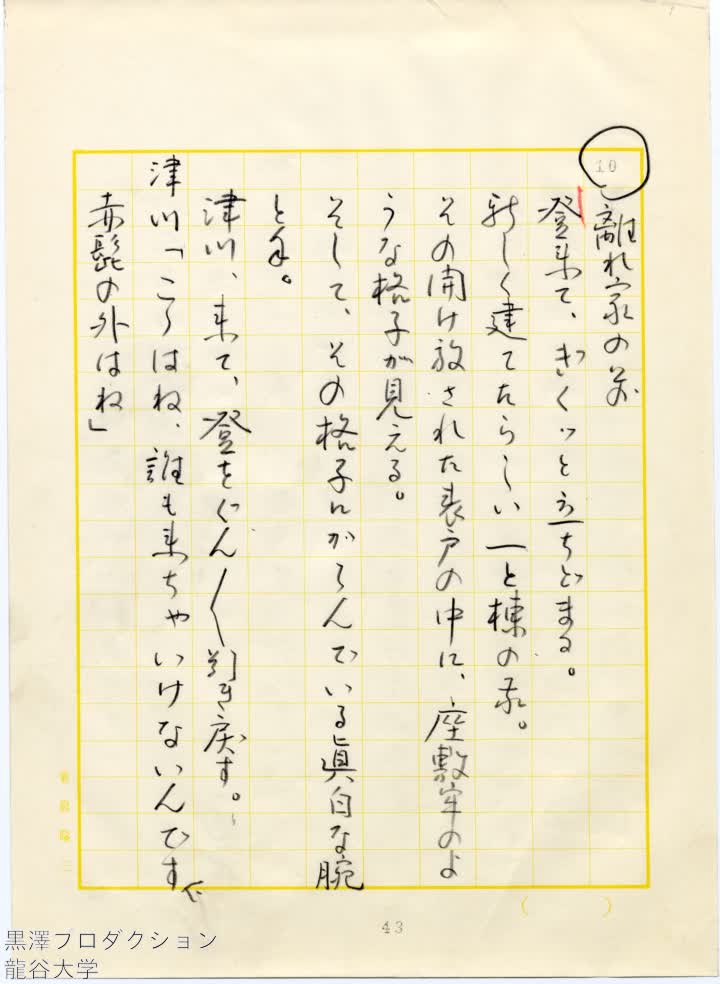 10
離れ家の前
登来て、ぎくッと立ちどまる。
新しく建てたらしい一と棟の家。
その開け放された表戸の中に、座敷牢のよ
うな格子が見える。
そして、その格子にからんでいる眞白な腕
と手。
津川、来て、登をぐん〱引き戻す。
津川「こゝはね、誰も来ちゃいけないんです
赤髭の外はね」
43
黒澤プロダクション
龍谷大学